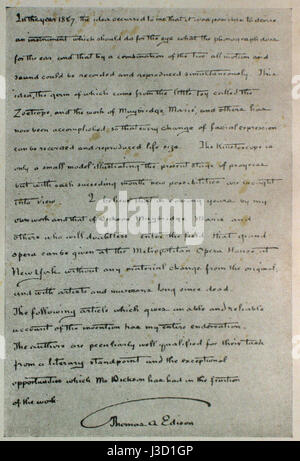 In the year 1887, the idea occurred to me that it was possible to devise
an instrument which should do for the eye what the phonograph does
for the ear, and that by a combination of the two all motion and
sound could be recorded and reproduced simultaneously. This
idea, the germ of which came from the little toy called the
Zoetrope, and the work of Muybridge, Marié, and others has
now been accomplished, so that every change of facial expression
can be recorded and reproduced life size. The Kinetoscope is
only a small model illustrating the present stage of progress
but with each succeeding month new possibilities are brought
into view. I believe that in coming years by my
own work and that of Dickson, Muybridge, Marié and
others who will doubtless enter the field that grand
opera can be given at the Metropolitan Opera House at
New York without any material change from the original,
and with artists and musicians long since dead.
The following article which gives an able and reliable
account of the invention has my entire endorsation.
The authors are peculiarly well qualified for their task
from a literary standpoint and the exceptional
opportunities which Mr Dickson has had in the fruition
of the work.
Thomas A Edison
alamy
J3D1GP
www.alamy.com